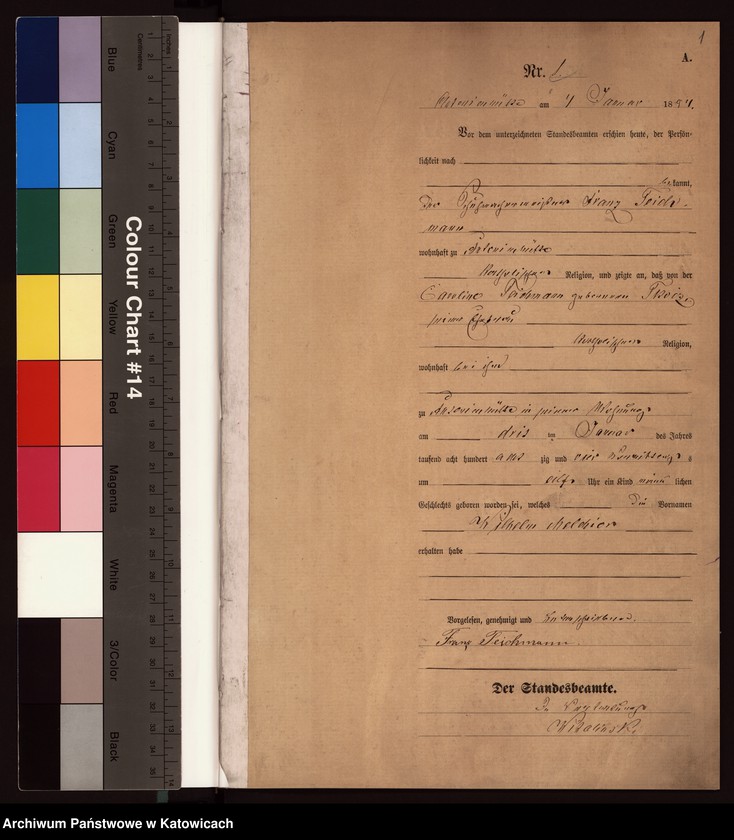 1
A.
Nr.
am 4 Januar 1884.
Vor dem unterzeichneten Standesbeamten erschien heute, der Persön-
lichkeit nach
kannt,
Der Franz Teich-
mann
wohnhaft zu Antonienhütte
katholischer Religion, und zeigte an, daß von der
Caroline Teichmann geborenen
seiner Ehefrau
katholischer Religion,
wohnhaft bei ihm
zu Antonienhütte in seiner Wohnung
am drei im Januar des Jahres
tausend acht hundert acht zig und vier Vormittags s
um Uhr ein Kind männ lichen
Geschlechts geboren worden sei, welches die Vornamen
Wilhelm Melchior
erhalten habe
Vorgelesen, genehmigt und unterschrieben.
Franz Teichmann
Der Standesbeamte.
In Vertretung
Colour Chart #14
Blue
Cyan
Green
Yellow
Red
Magenta
White
3/Color
Black
Centimetres
Inches
Archiwum Państwowe w Katowicach